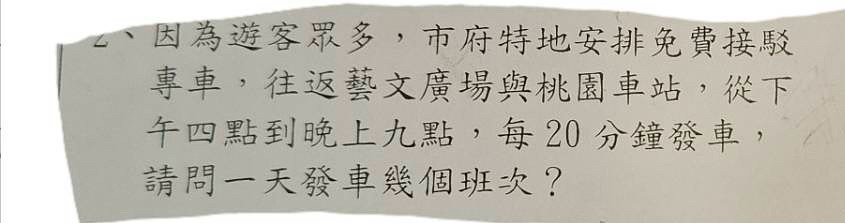 2、因為遊客眾多，市府特地安排免費接駁
專車，往返藝文廣場與桃園車站，從下
午四點到晚上九點，每20分鐘發車，
請問一天發車幾個班次？